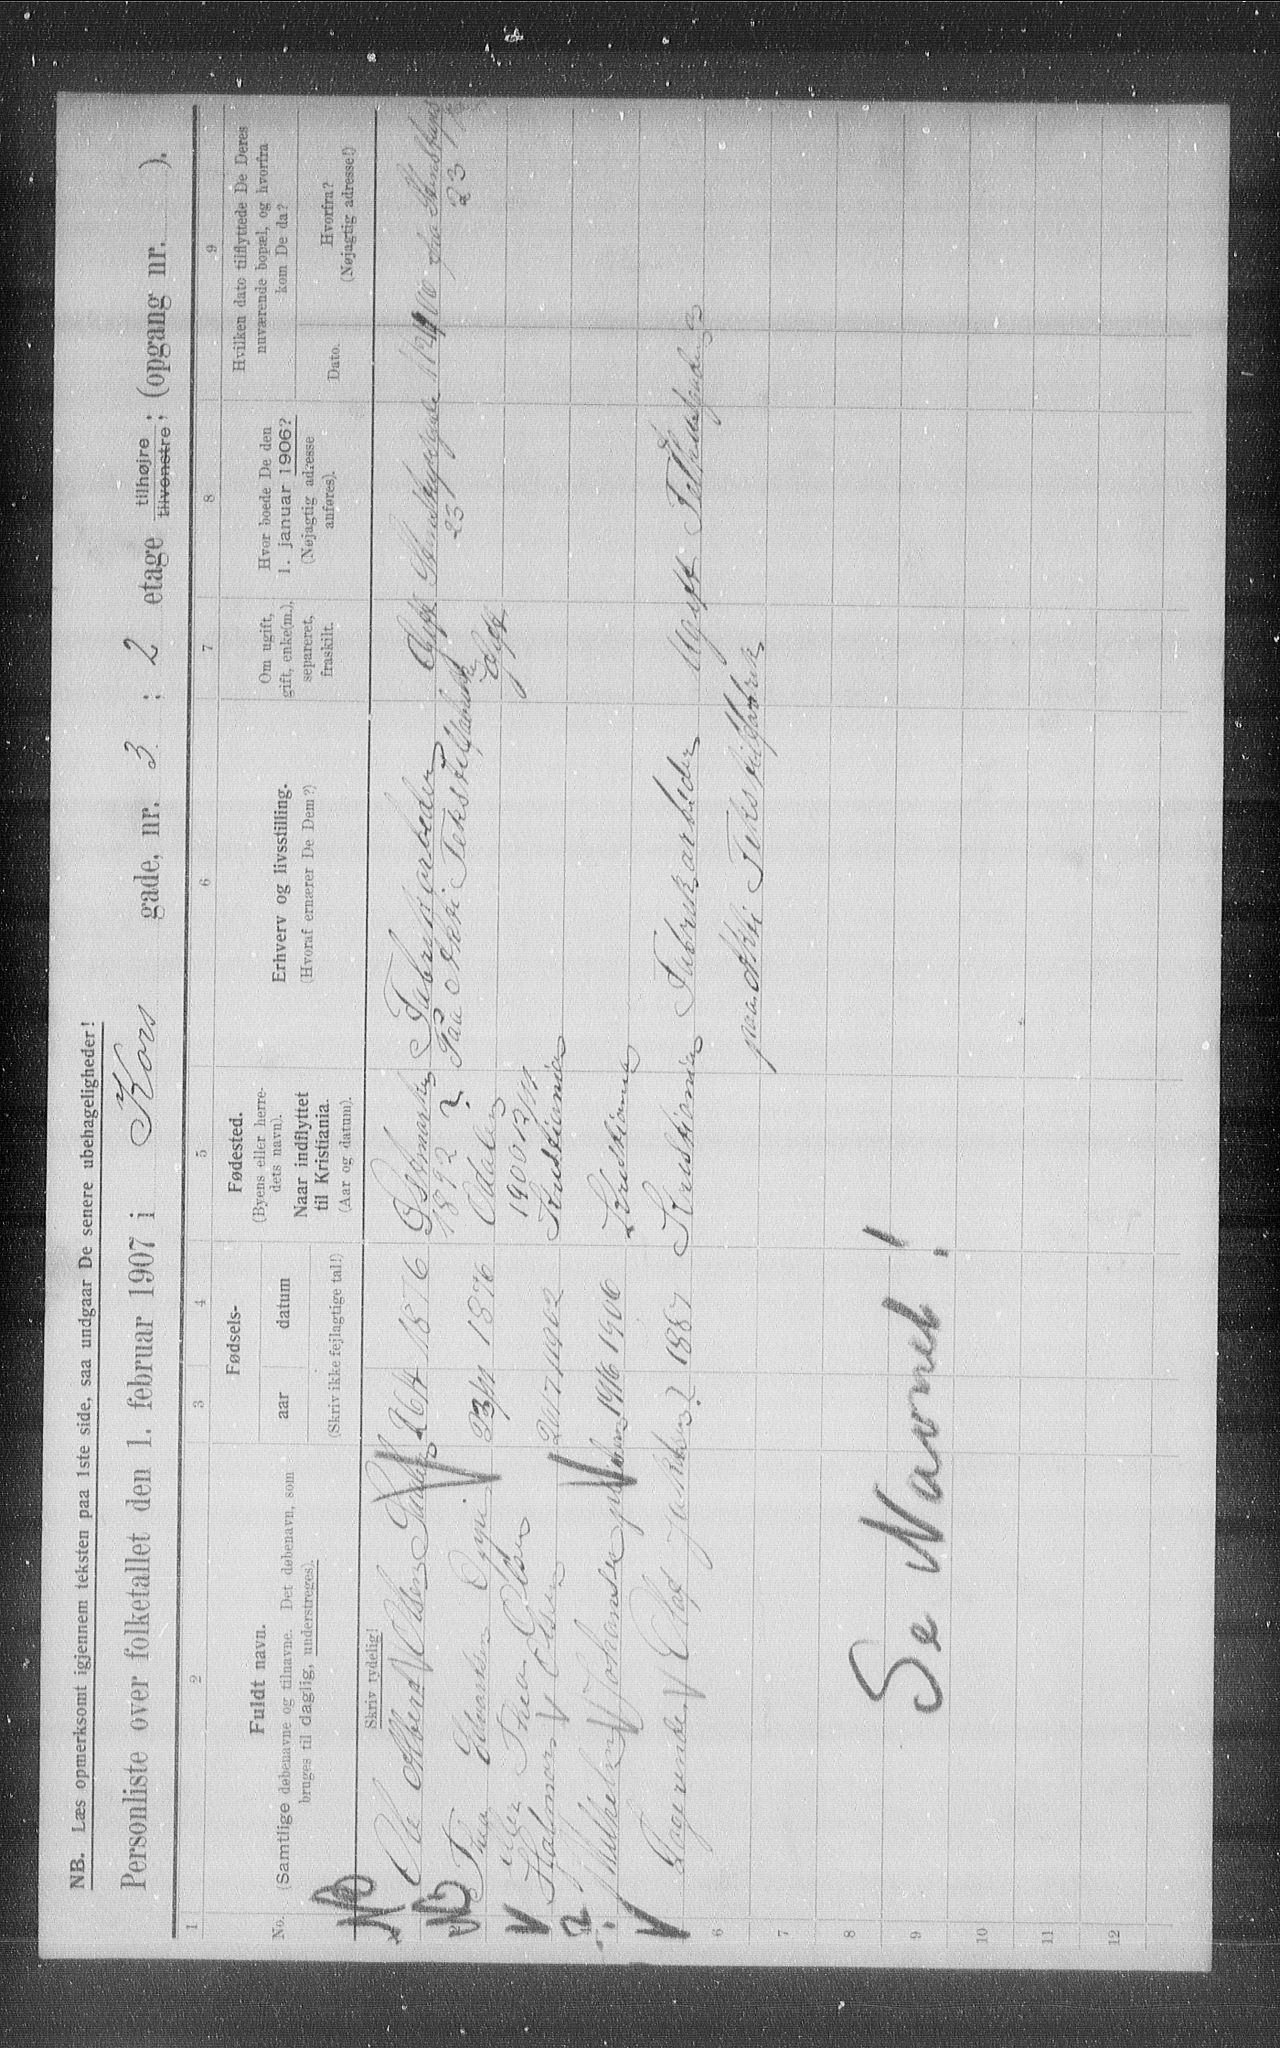 NB. Læs opmerksomt igjennem teksten paa 1ste side, saa undgaar De senere ubehageligheder!
Personliste over folketallet den 1. februar 1907 i Kors gade, nr. 3 ; 2 etage tilhøjre tilvenstre ; (opgang nr. ).
1 2 3 4 5 6 7 8 9
No.
Fuldt navn.
(Samtlige døbenavne og tilnavne. Det døbenavn, som
bruges til daglig, understreges).
Fødsels-
aar datum
(Skriv ikke fejlagtige tal!)
Fødested.
(Byens eller herre-
dets navn).
Naar indflyttet
til Kristiania.
(Aar og datum).
Erhverv og livsstilling.
(Hvoraf ernærer De Dem?)
Om ugift,
gift, enke(m.),
separeret,
fraskilt.
Hvor boede De den
1. januar 1906?
(Nøjagtig adresse
anføres).
Hvilken dato tilflyttede De Deres
nuværende bopæl, og hvorfra
kom De da?
Dato.
Hvorfra?
(Nøjagtig adresse!)
Skriv tydelig!
NB Ole Albert Olsen 26/4 1876 Østmarken Fabrikarbeder Gift
1892 ? Paa Akti Tekstilfabrik 25 23
NB 2 Thea Edvardsen 1876 Odalen Gift
eller Thea Olsen 1900
Halmar Olsen 20/7 1902 Kristiania
? 4 Vilhelm Johansen 19/6 1906 Kristiania
Logerende Olaf ? 1887 Kristiania Fabrikarbeder Ugift
paa Akti Tekstilfabrik
6
7
8
9
10
11
12
Se Navnet!